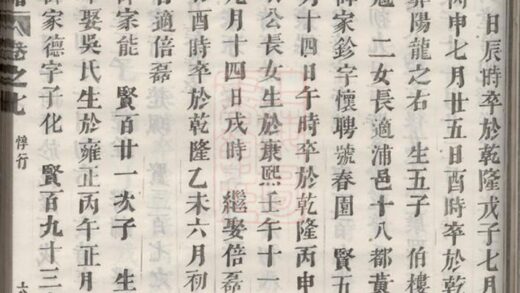 日辰時卒於乾隆戊子七月
丙申七月廿五日酉時卒於乾
葬陽龍之右 生五子 伯樓
適 二女長適浦邑十八都黃
傳家鈐字懷聘號春園 賢五
月十四日午時卒於乾隆丙申
公長女生於康熙壬午十一
九月十四日戌時 繼娶倍磊
酉時卒於乾隆乙未六月初
適倍磊
家能 賢百廿一次子 生
娶吳氏生於雍正丙午正月
家德字子化 賢百九十三
卷之七
悖行